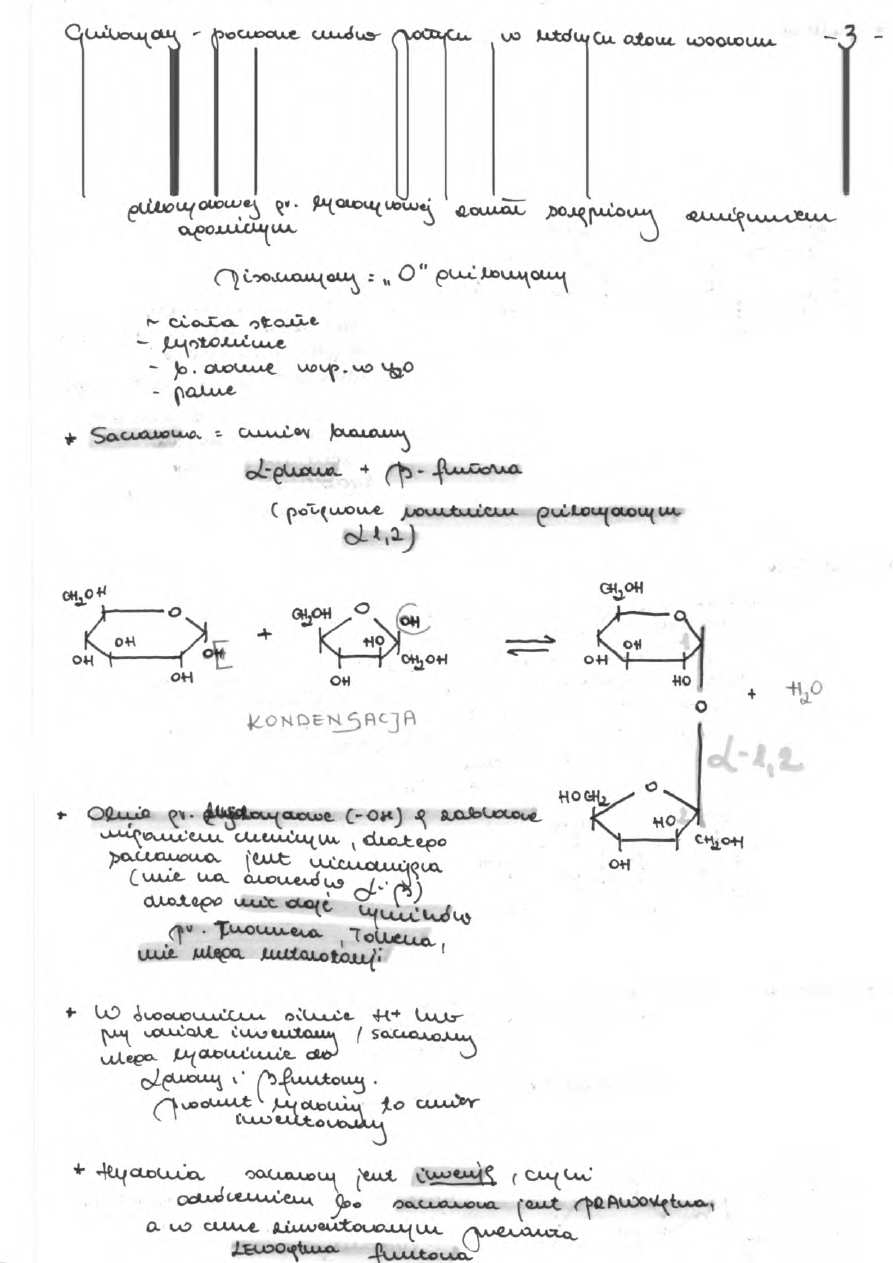 Glikozydy - pochodne cukrów prostych, w których atom wodoru - 3 -
glikozydowej gr. hydroksylowej został zastąpiony
Disacharydy = "O" glikozydy
- ciała stałe
- krystaliczne
- b. dobrze rozp. w H2O
- palne
* Sacharoza = cukier buraczany
α-glukoza + β-fruktoza
(połączone wiązaniem glikozydowym
α 1,2)
CH2OH O OH OH OH OH + CH2OH O OH HO CH2OH OH ⇌ CH2OH O OH OH HO 1 O + H2O
KONDENSACJA
α-1,2
HOCH2 O HO 2 CH2OH OH
* Obie gr. (-OH) są
wiązaniem chemicznym, dlatego
sacharoza jest nieredukująca
(nie ma anomerów α i β)
dlatego nie daje wyników
pr. Trommera, Tollensa,
nie ulega mutarotacji
* W środowisku silnie H+ lub
przy udziale inwertazy / sacharazy
ulega hydrolizie do
α glukozy i β fruktozy.
produkt hydrolizy to cukier
inwertowany
* Hydroliza sacharozy jest inwersją, czyli
odwróceniem bo sacharoza jest PRAWOskrętna,
a w cukrze zinwertowanym przeważa
LEWOskrętna fruktoza